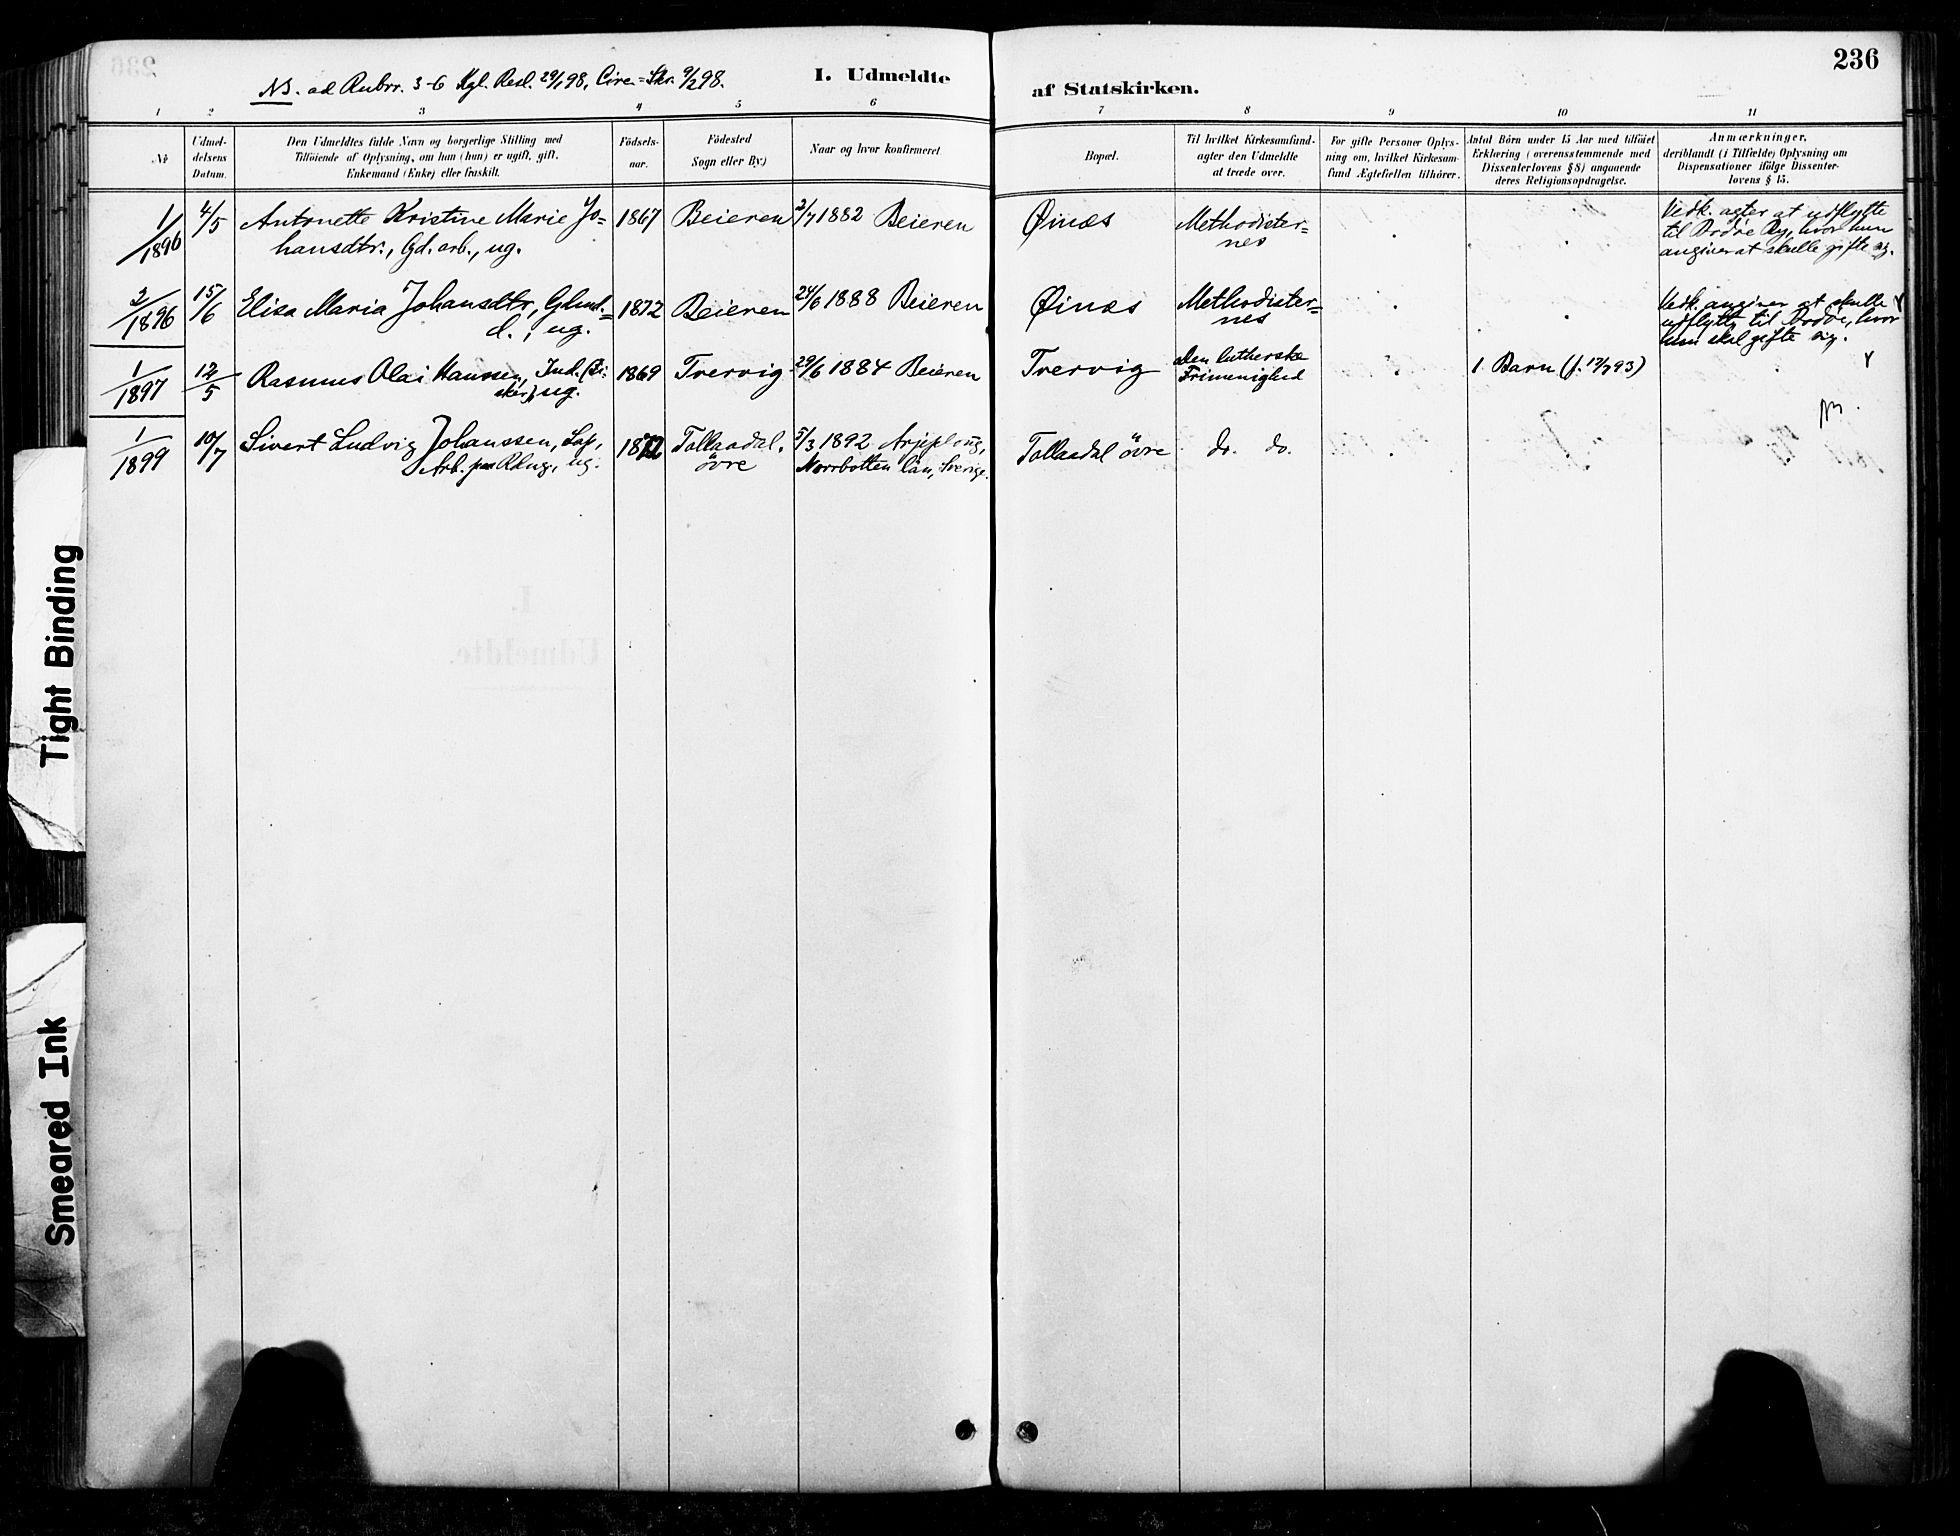 236
NB. ad Rubrr. 3-6 Kgl. Resl. 29/1 98, Circ.-Skr. 9/2 98.
I. Udmeldte
af Statskirken.
1 2 3 4 5 6 7 8 9 10 11
No
Udmel-
delsens
Datum.
Den Udmeldtes fulde Navn og borgerlige Stilling med
Tilføiende af Oplysning, om han (hun) er ugift, gift,
Enkemand (Enke) eller fraskilt.
Födsels-
aar.
Födested
Sogn eller By.)
Naar og hvor konfirmeret
Bopæl.
Til hvilket Kirkesamfund
agter den Udmeldte
at træde over.
For gifte Personer Oplys-
ning om, hvilket Kirkesam-
fund Ægtefællen tilhörer.
Antal Börn under 15 Aar med tilföiet
Erklæring (overensstemmende med
Dissenterlovens § 8) angaaende
deres Religionsopdragelse.
Anmærkninger,
deriblandt (i Tilfælde) Oplysning om
Dispensationer ifölge Dissenter-
lovens § 15.
1/1896 4/5 Antonette Kristine Marie Jo=
hansdtr., Gd. arb., ug.
1867 Beieren 2/7 1882 Beieren Øinæs
Methodister=
nes
Vedk. agter at udflytte
til Bodøe By, hvor hun
angiver at skulle gifte sig.
2/1896 15/6 Elisa Maria Johansdtr,
d., ug.
1872 Beieren 24/6 1888 Beieren Øinæs
Methodister=
nes
Vedk. angiver at skulle
udflytte til Bodøe, hvor
hun skal gifte sig.
1/1897 12/5 Rasmus Olai Hanssen, Ind. (Fi-
sker), ug.
1869 Tvervig 29/6 1884 Beieren Tvervig
Den lutherske
Frimenighed
1 Barn (f. 12/7 93)
1/1899 10/7 Sivert Ludvig Johanssen, Lap,
Arb. paa Rdng, ug.
Tollaadal,
övre
5/3 1892 Arjeploug,
Norrbotten län, Sverige.
Tollaadal övre do. do.
I.
Udmeldte.
Tight Binding
Smeared Ink